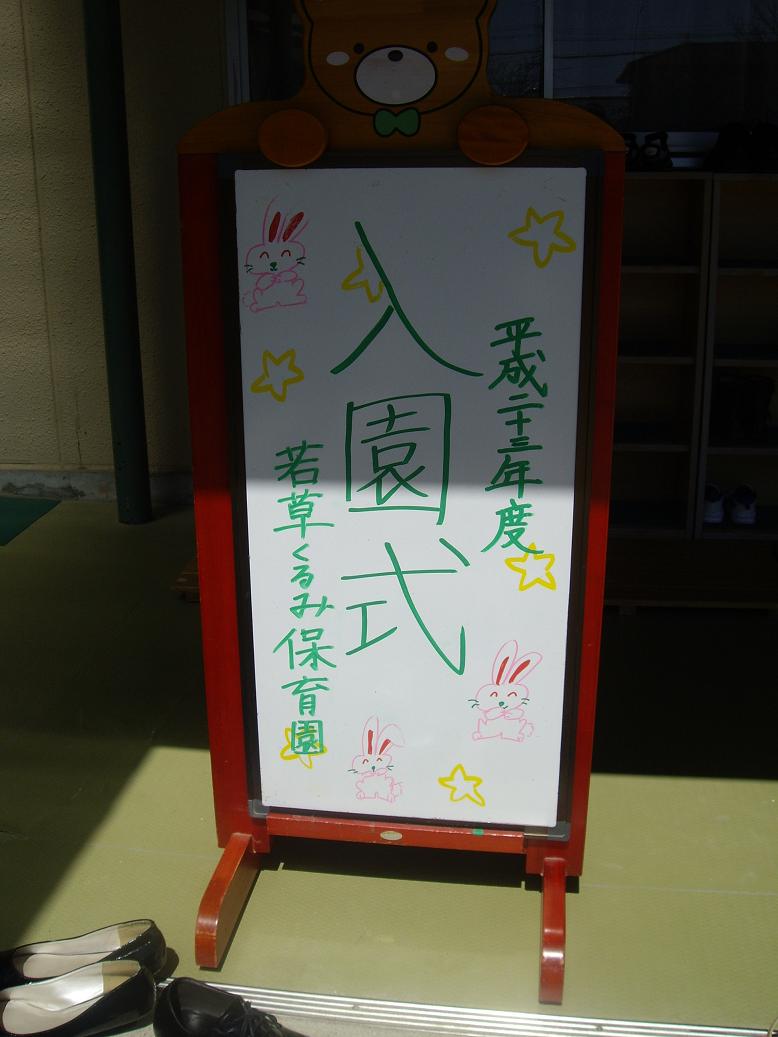 平成二十三年度
入園式
若草くるみ保育園